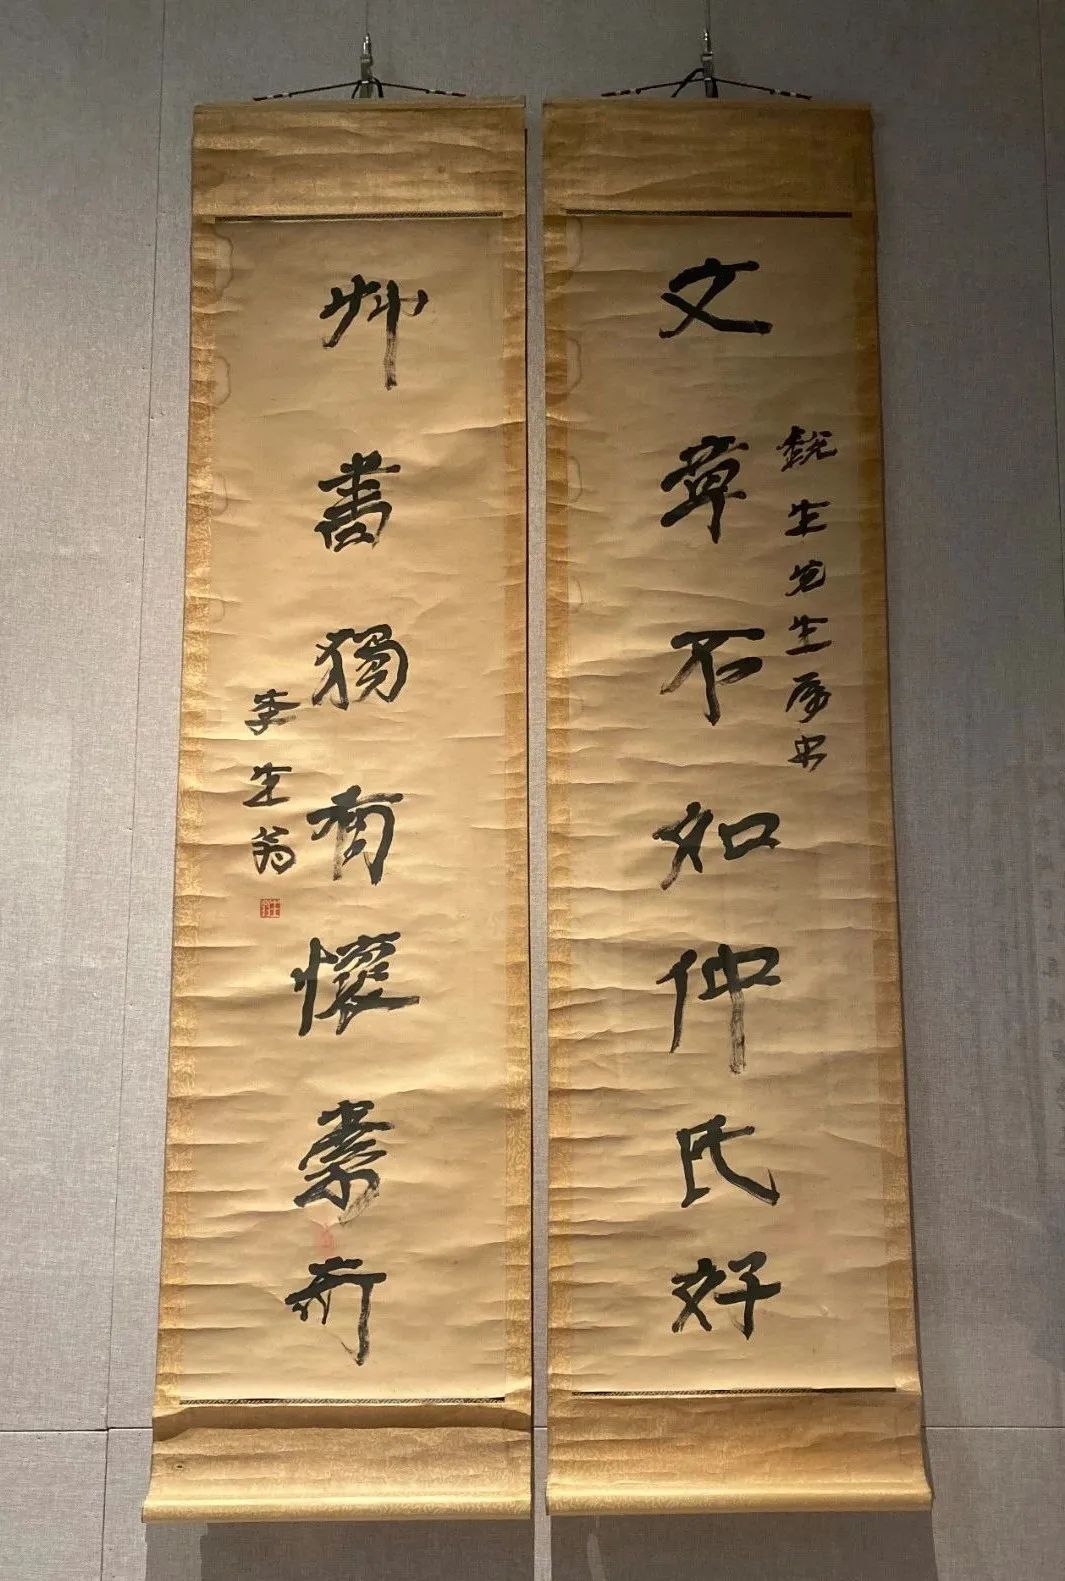 文章不如仲氏好
銳生先生属书
艸書獨有懷素奇
李生翁